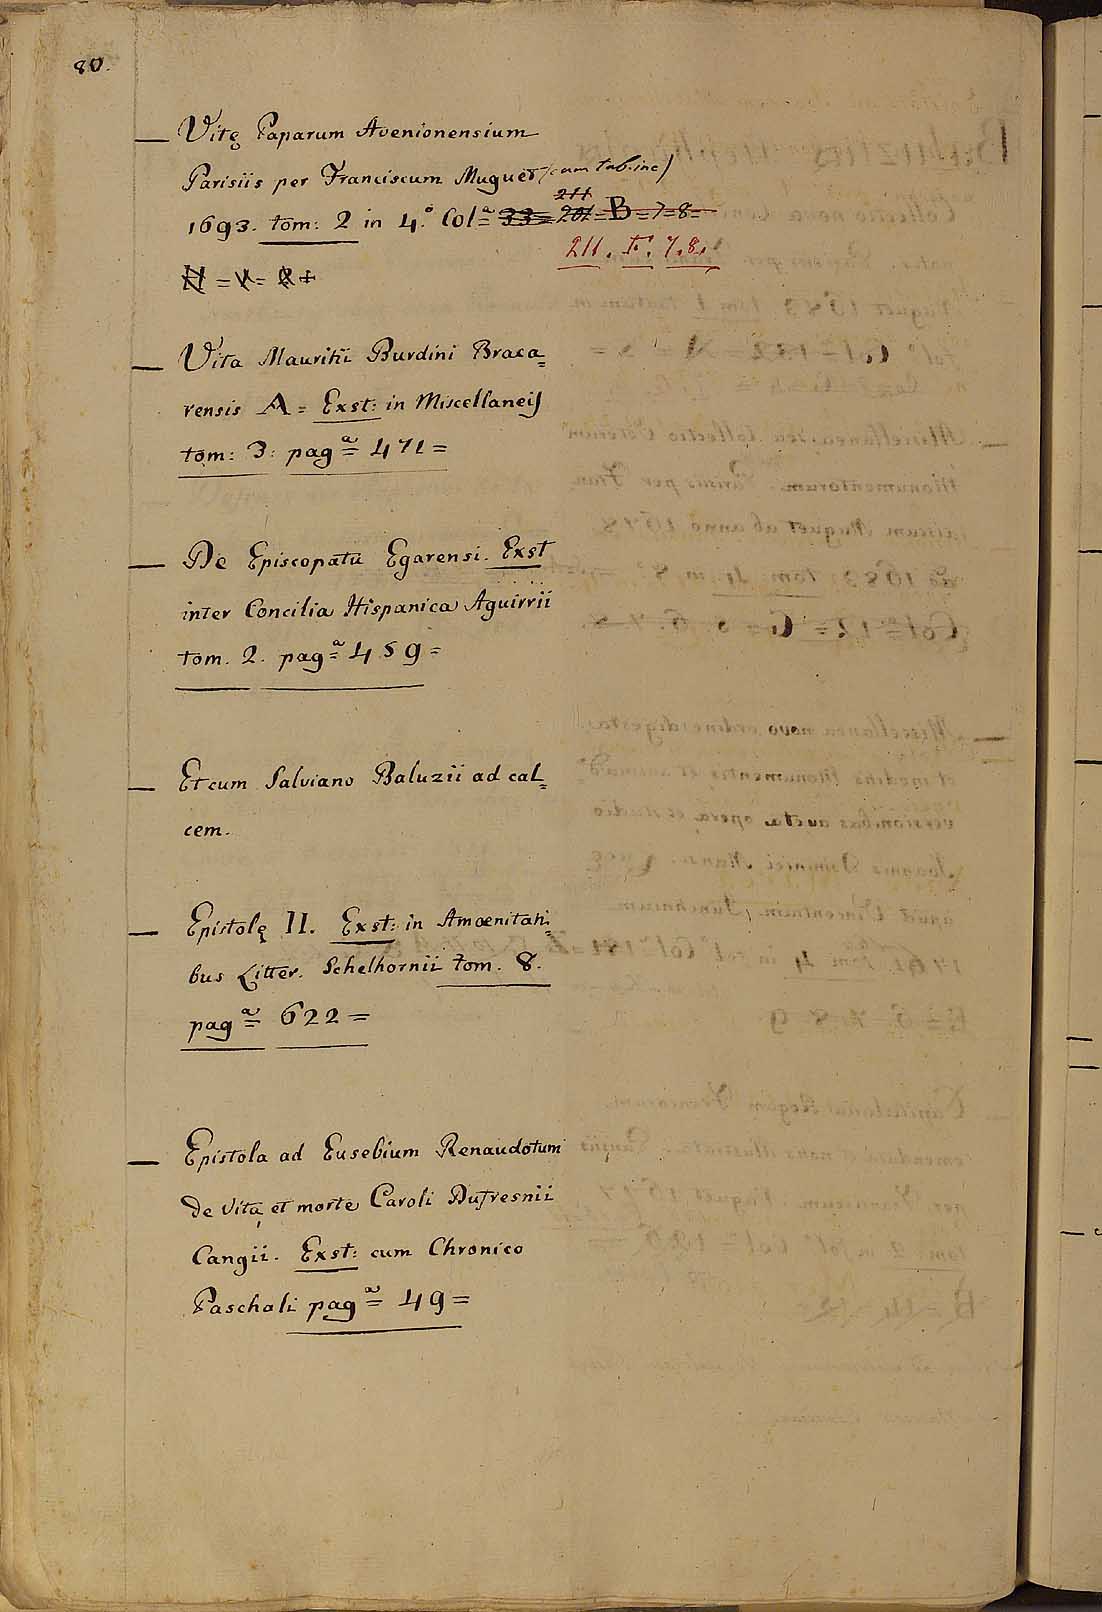 80.
— Vitę Paparum Avenionensium
Parisiis per Franciscum Muguet (cum tab: inc)
1693. tom: 2 in 4.º Colª= 33= 201 = B = 7 = 8 =
211
211. T. 7. 8.
— Vita Mauritii Burdini Braca=
rensis A = Exst: in Miscellaneis
tom: 3: pagª= 471 =
— De Episcopatu Egarensi. Exst
inter Concilia Hispanica Aguirrii
tom. 2. pagª= 459 =
— Et cum Salviano Baluzii ad cal=
cem.
— Epistolę II. Exst: in Amœnitati=
bus Litter. Schelhornii tom. 8.
pagª= 622 =
— Epistola ad Eusebium Renaudotum
de vita et morte Caroli Dufresnii
Cangii. Exst: cum Chronico
Paschali pagª= 49 =